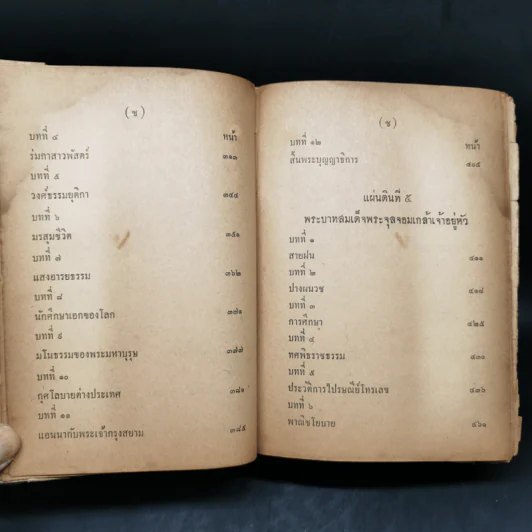 (ช)
บทที่ ๔ หน้า
ร่มกาสาวพัสตร์ ๓๑๓
บทที่ ๕
วงศ์ธรรมยุติกา ๓๔๔
บทที่ ๖
มรสุมชีวิต ๓๕๑
บทที่ ๗
แสงอารยธรรม ๓๖๒
บทที่ ๘
นักศึกษาเอกของโลก ๓๗๑
บทที่ ๙
มโนธรรมของพระมหาบุรุษ ๓๗๗
บทที่ ๑๐
กุศโลบายต่างประเทศ ๓๘๑
บทที่ ๑๑
แอนนากับพระเจ้ากรุงสยาม ๓๘๕
บทที่ ๑๒ หน้า
สิ้นพระบุญญาธิการ ๔๐๕
แผ่นดินที่ ๕
พระบาทสมเด็จพระจุลจอมเกล้าเจ้าอยู่หัว
บทที่ ๑
สายฝน ๔๑๑
บทที่ ๒
ปางผนวช ๔๑๘
บทที่ ๓
การศึกษา ๔๒๕
บทที่ ๔
ทศพิธราชธรรม ๔๓๐
บทที่ ๕
ประวัติการไปรษณีย์โทรเลข ๔๓๖
บทที่ ๖
พาณิชโยบาย ๔๖๑